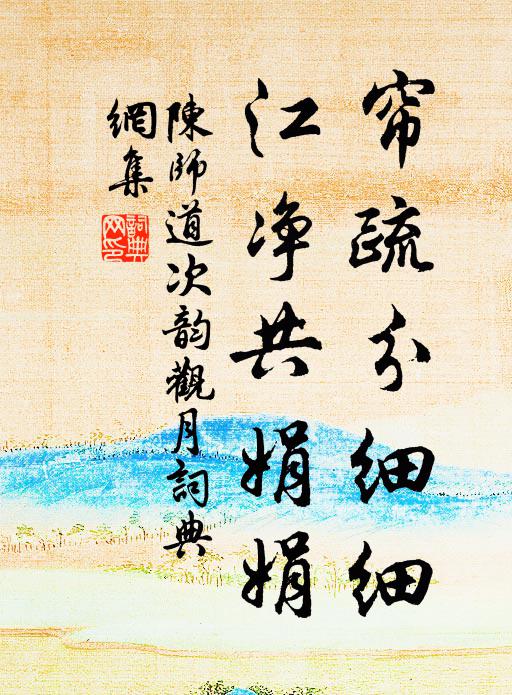 帘疏分细细
江净共娟娟
陳師道次韵觀月詞典
網集
詞典
网印